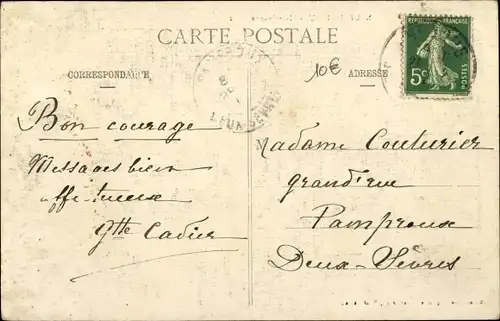 CARTE POSTALE
CORRESPONDANCE
ADRESSE
10€
REPUBLIQUE FRANÇAISE
5c
Bon courage
Messages bien
affectueux
Madame Couturier
grand'rue
Pamproux
Deux-Sèvres